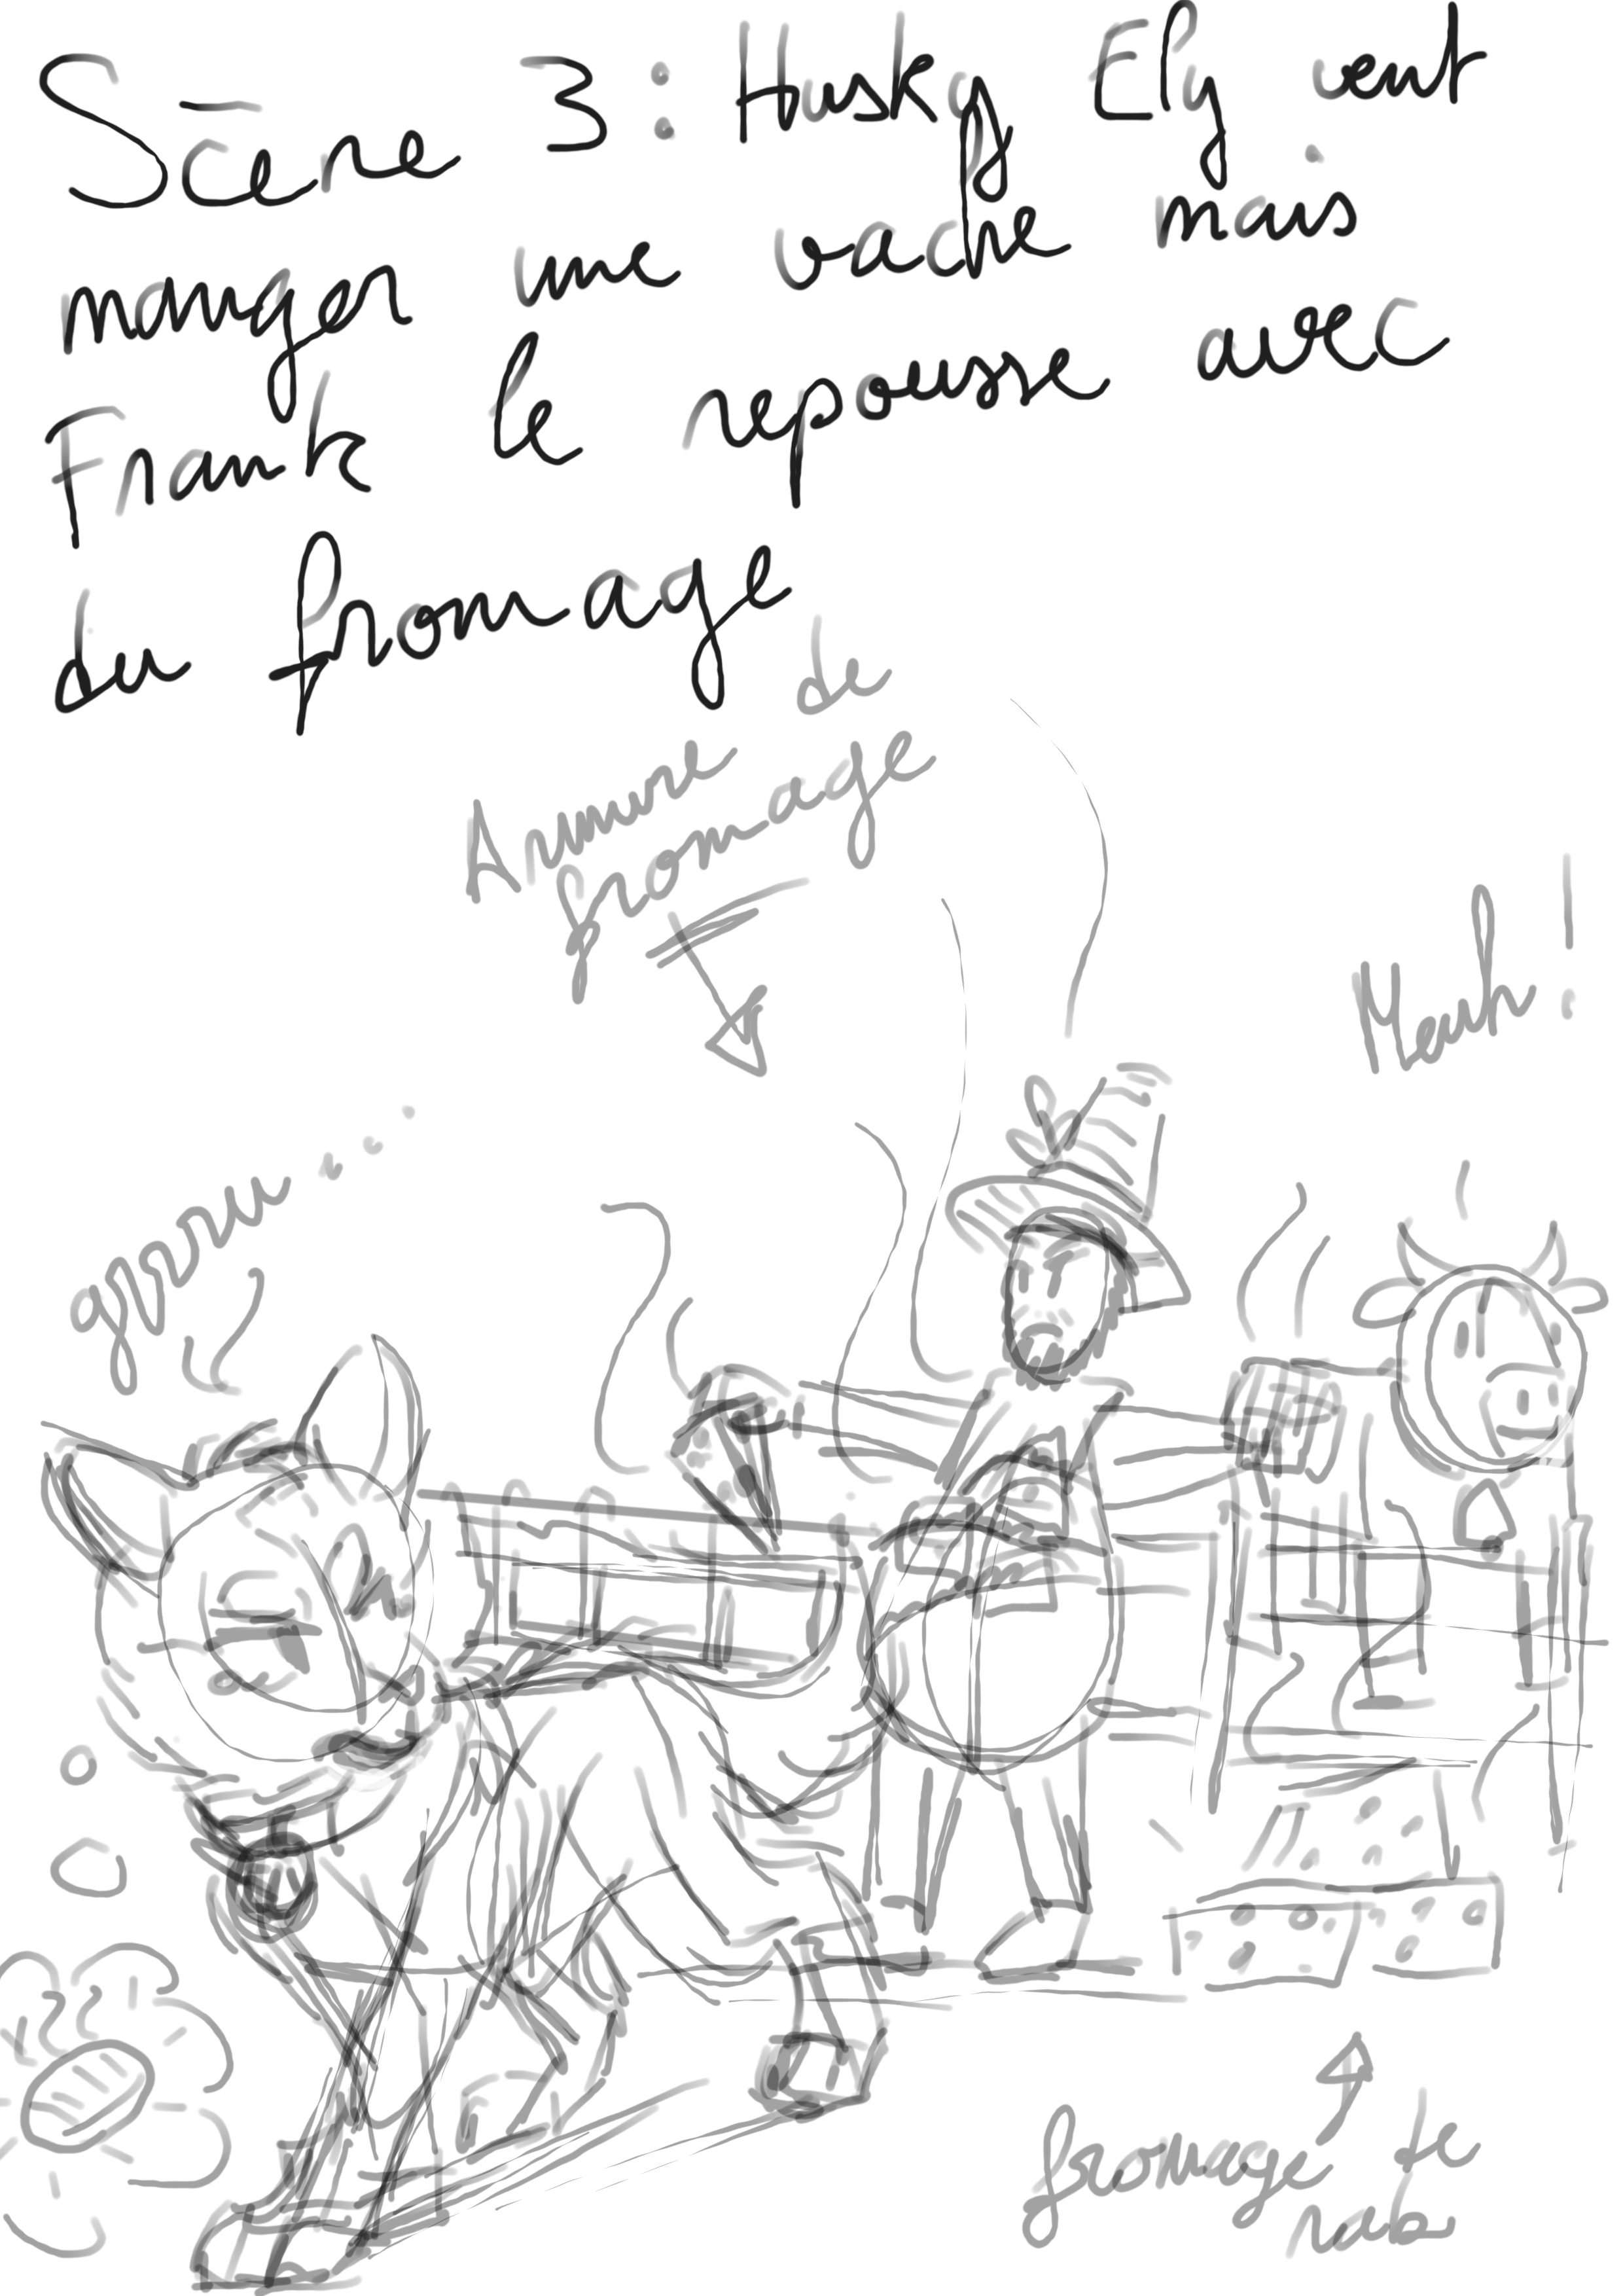 Scēne 3: Husky Ely veut
manger une vache mais
Frank le repousse avec
du fromage
Armure de
fromage
Meuh!
grrrr...
fromage